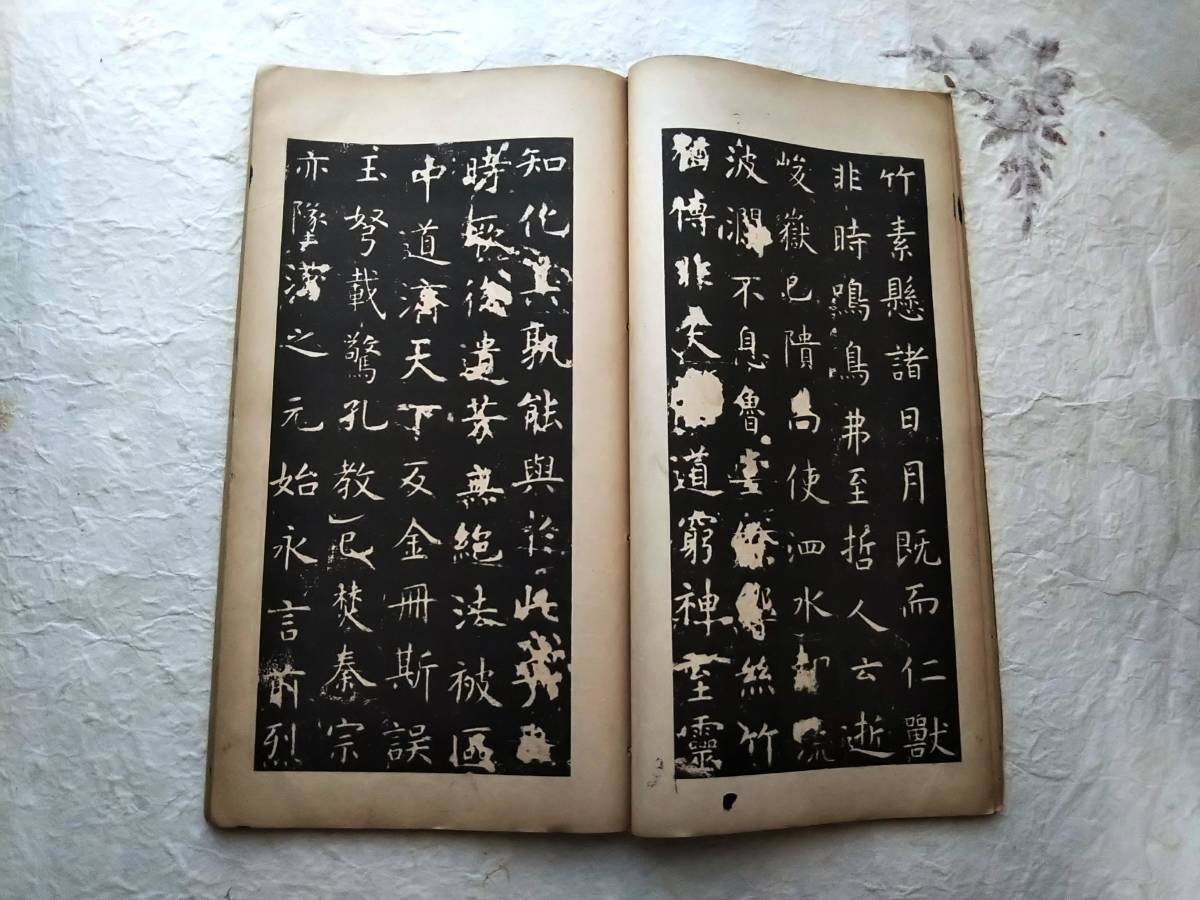 竹素懸諸日月既而仁獸
非時鳴鳥弗至哲人云逝
峻嶽已隤尚使泗水却流
波瀾不息魯 響絲竹
猶傳非夫 道窮神至靈
知化其孰能與於此乎自
時厥後遺芳無絕法被區
中道濟天下及金冊斯誤
玉弩載驚孔教已焚秦宗
亦墜漢之元始永言前烈